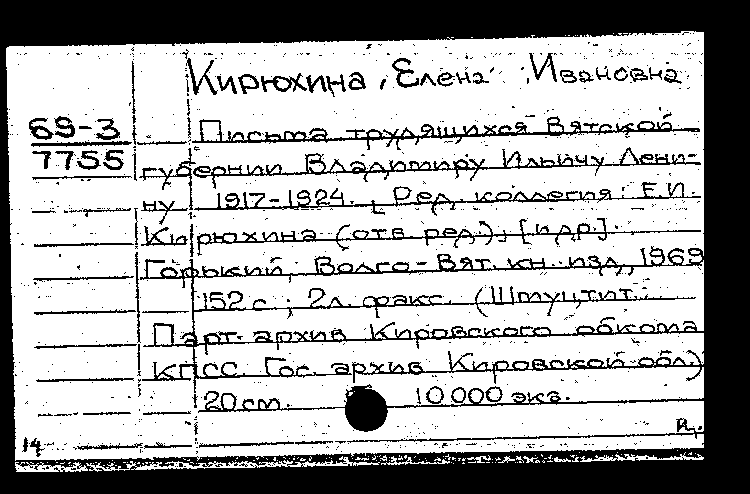 Кирюхина, Елена Ивановна
69-3
7755
Письма трудящихся Вятской
губернии Владимиру Ильичу Лени-
ну 1917-1924. [Ред. коллегия: Е.И.
Кирюхина (отв. ред.), [и др.].
Горький, Волго-Вят. кн. изд, 1969
152 с; 2л. факс. (Шмуцтит.:
Парт. архив Кировского обкома
КПСС. Гос. архив Кировской обл.)
20 см. 10 000 экз.
14